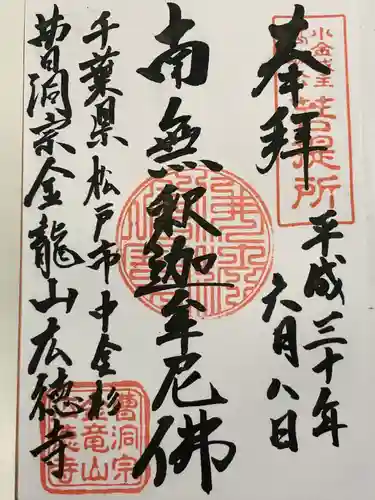 奉拝
平成三十年
六月八日
南無釈迦牟尼佛
千葉県松戸市中金杉
曹洞宗金龍山広徳寺
菩提所
曹洞宗
金竜山
広徳寺